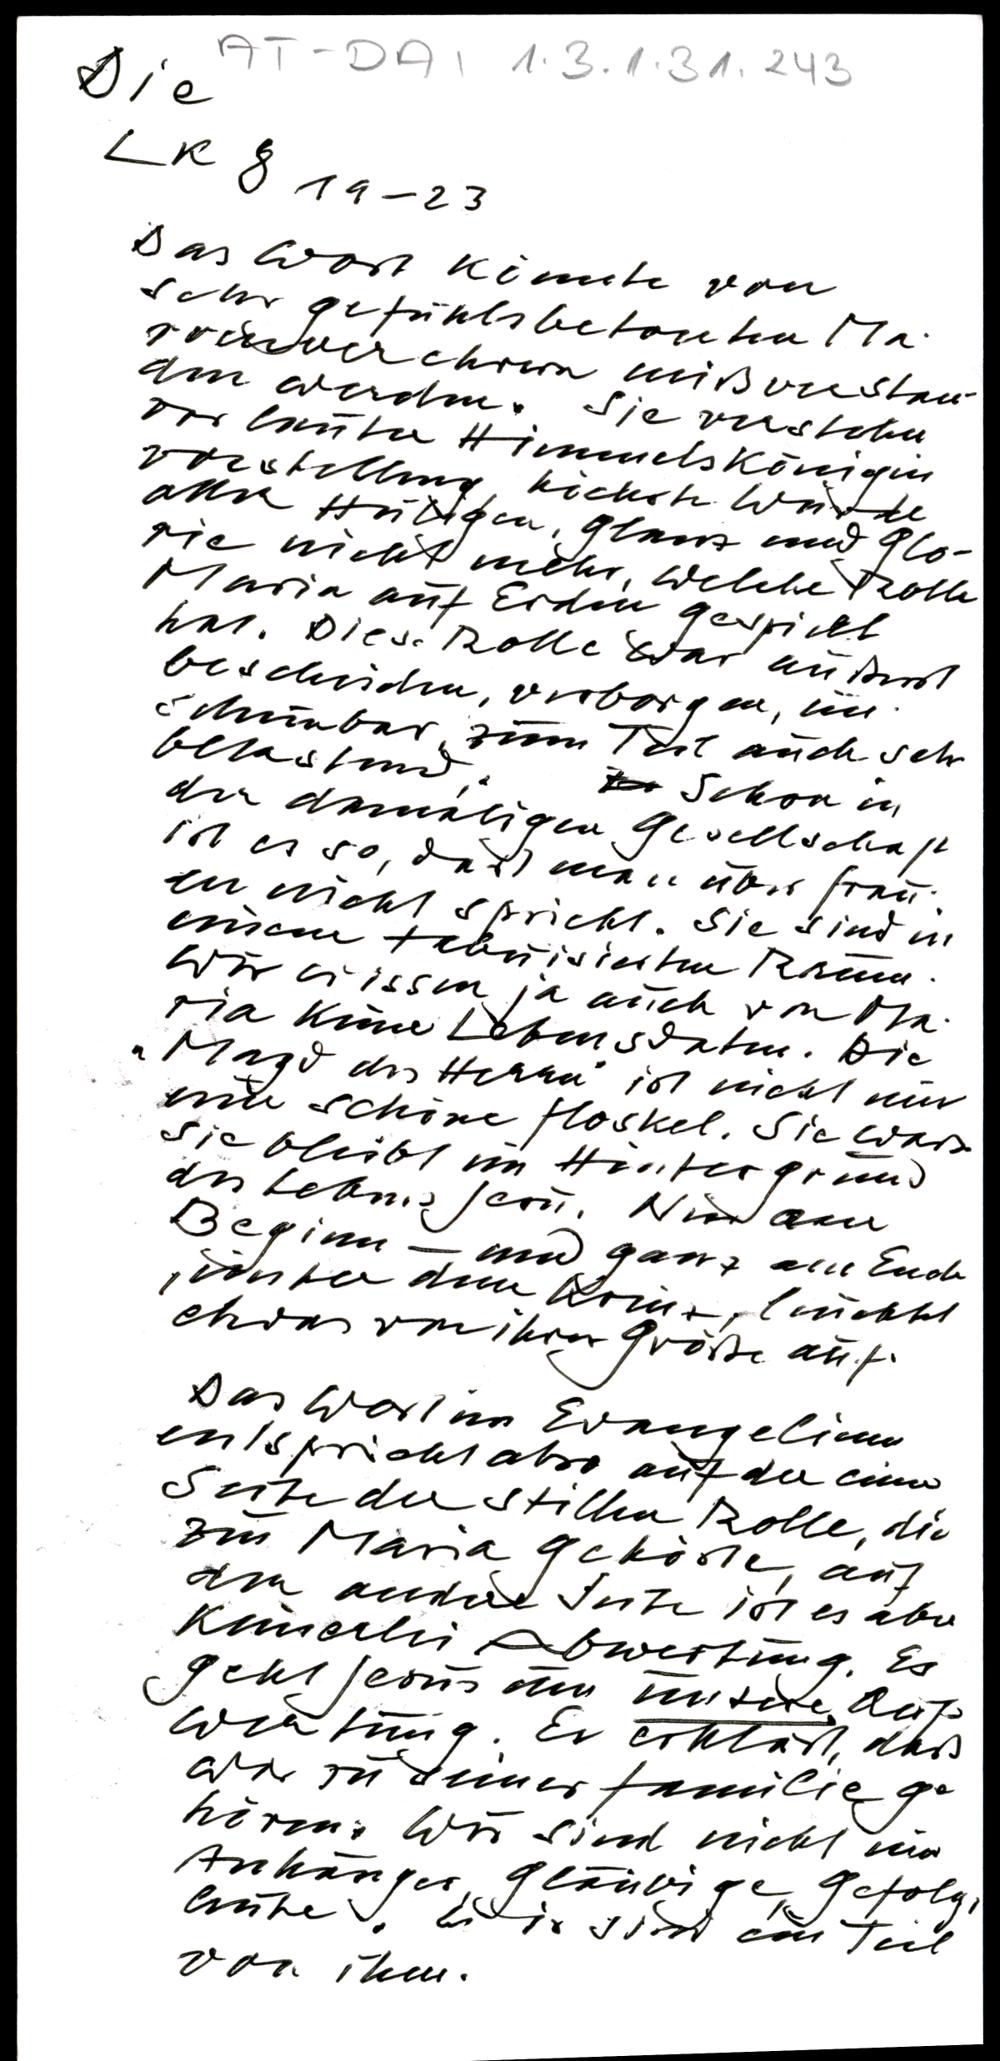 AT-DA, 1.3.1.31.243
Die
LK 8 19-23
Das Wort könnte von
sehr gefühlsbetonten Ma-
rienverehrern mißverstan-
den werden. Sie verstehen
vor lauter Himmelskönigin
vorstellung, höchste Würde
aller Heiligen, Glanz und Glo-
rie nicht mehr, welche Rolle
Maria auf Erden gespielt
hat. Diese Rolle war äußerst
bescheiden, verborgen, un-
scheinbar, zum Teil auch sehr
belastend. Schon in
der damaligen Gesellschaft
ist es so, daß man über Frau-
en nicht spricht. Sie sind in
einem tabuisierten Raum.
Wir wissen ja auch von Ma-
ria keine Lebensdaten. Die
"Magd des Herrn" ist nicht nur
eine schöne Floskel. Sie war's
Sie bleibt im Hintergrund
des Lebens Jesu. Nur am
Beginn – und ganz am Ende
, unter dem Kreuz, leuchtet
etwas von ihrer Größe auf.
Das Wort im Evangelium
entspricht also auf der einen
Seite der stillen Rolle, die
zu Maria gehörte, auf
der andern Seite ist es aber
keinerlei Abwertung. Es
geht Jesus um unsere Auf-
wertung. Er erklärt, daß
wir zu seiner Familie ge
hören. Wir sind nicht nur
Anhänger, Gläubige, Gefolgs
leute. Wir sind ein Teil
von ihm.